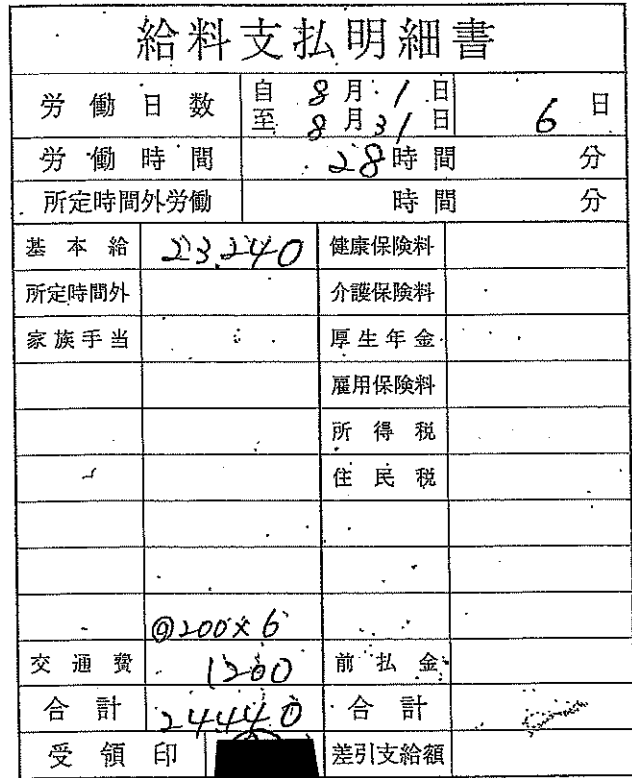 給料支払明細書
労働日数 自 8月1日 至 8月31日 6日
労働時間 28時間 分
所定時間外労働 時間 分
基本給 23.240 健康保険料
所定時間外 介護保険料
家族手当 厚生年金
雇用保険料
所得税
住民税
@200×6
交通費 1200 前払金
合計 24440 合計
受領印 差引支給額